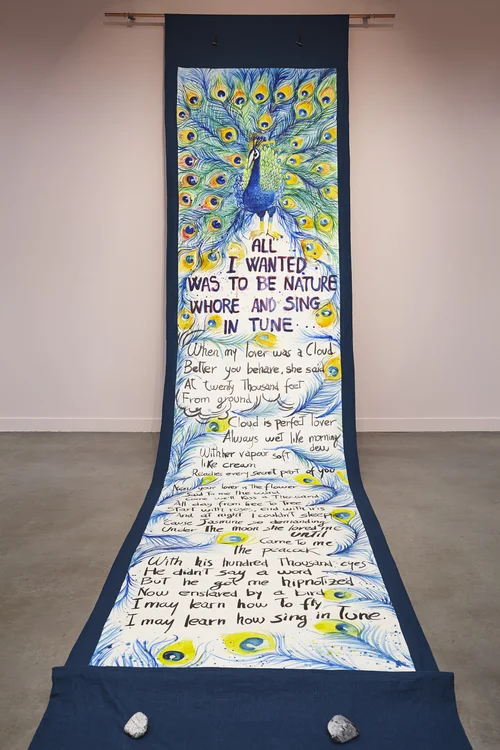 ALL
I WANTED
WAS TO BE NATURE
WHORE AND SING
IN TUNE...
When my lover was a Cloud
Better you behave, she said
At twenty Thousand feet
From ground
Cloud is perfect lover
Always wet like morning
dew
With her vapor soft
like cream
Reaches every secret part of you
Now your lover is the flower
Said to me the wind
Come we'll Kiss a Thousand
All day from tree to tree
Start with roses, end with iris
And at night I couldn't sleep
'Cause Jasmine so demanding
Under the moon she loved me
until
Came to me
the peacock
With his hundred Thousand eyes
He didn't say a word
But he got me hipnotized
Now enslaved by a bird
I may learn how to fly
I may learn how sing in tune